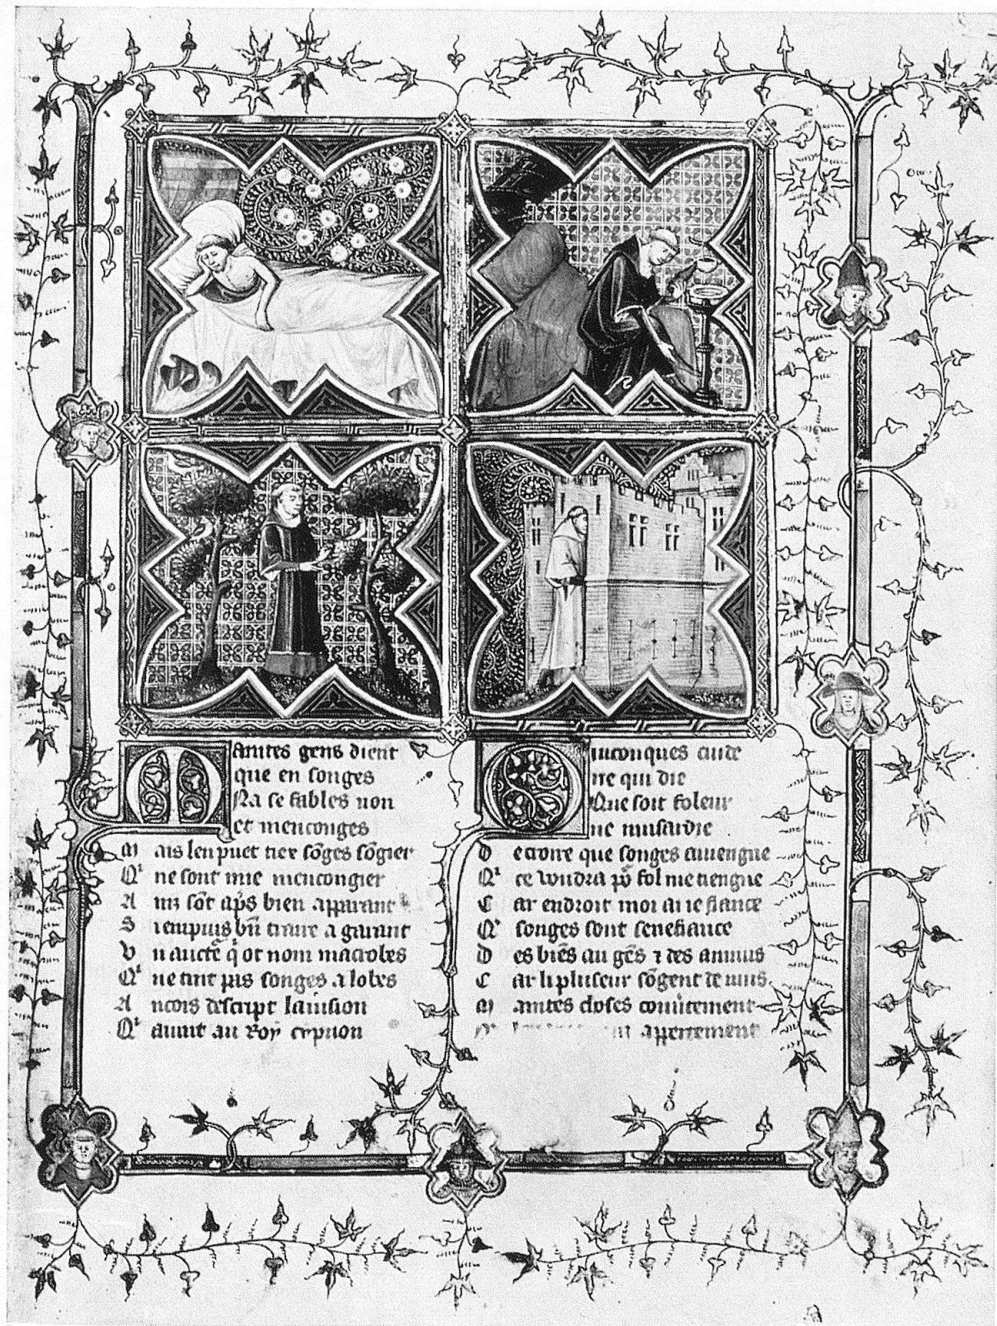 Maintes gens dient
que en songes
Na se fables non
et menconges
Mais len puet tiex sõges sõgier
Qͥ ne sont mie mencongier
Ains sõt ap̃s bien apparant
Si em puis bñ traire a garant
Un aucte᷑ qͥ ot nom macrobes
Qͥ ne tint pas songes a lobes
Ancois descript la vision
Qͥ avint au Roy cypion
Quiconques cuide
ne qui die
Que soit foleur
ne musardie
De croire que songes aviengne
Qͥ ce voudra po᷑ fol me tiengne
Car endroit moi ai ie fiance
Qͤ songes sont senefiance
Des biẽs au gẽs ⁊ des annuis
Car li pluseur sõgent de nuis
Maintes choses couv̾tement
appertement